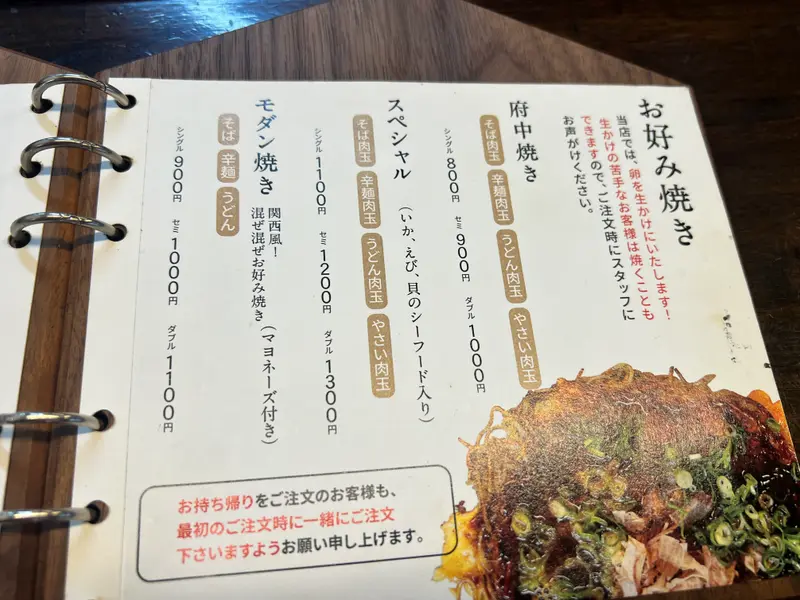 お好み焼き
当店では、卵を生かけにいたします！
生かけの苦手なお客様は焼くことも
できますので、ご注文時にスタッフに
お声がけください。
府中焼き
そば肉玉 辛麺肉玉 うどん肉玉 やさい肉玉
シングル 800円 セミ 900円 ダブル 1000円
スペシャル （いか、えび、貝のシーフード入り）
そば肉玉 辛麺肉玉 うどん肉玉 やさい肉玉
シングル 1100円 セミ 1200円 ダブル 1300円
モダン焼き 関西風！
混ぜ混ぜお好み焼き（マヨネーズ付き）
そば 辛麺 うどん
シングル 900円 セミ 1000円 ダブル 1100円
お持ち帰りをご注文のお客様も、
最初のご注文時に一緒にご注文
下さいますようお願い申し上げます。